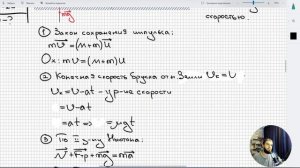 mg
скоростью.
① Закон сохранения импульса:
mv = (м+m)u
Ox: mv = (м+m)u
② Конечная скорость бруска от.н. Земли Uк = U
Uк = U-at - ур-ие скорости
= U-at
= at => = μgt
③ По II з-ну Ньютона:
N + Fтр + mg = ma